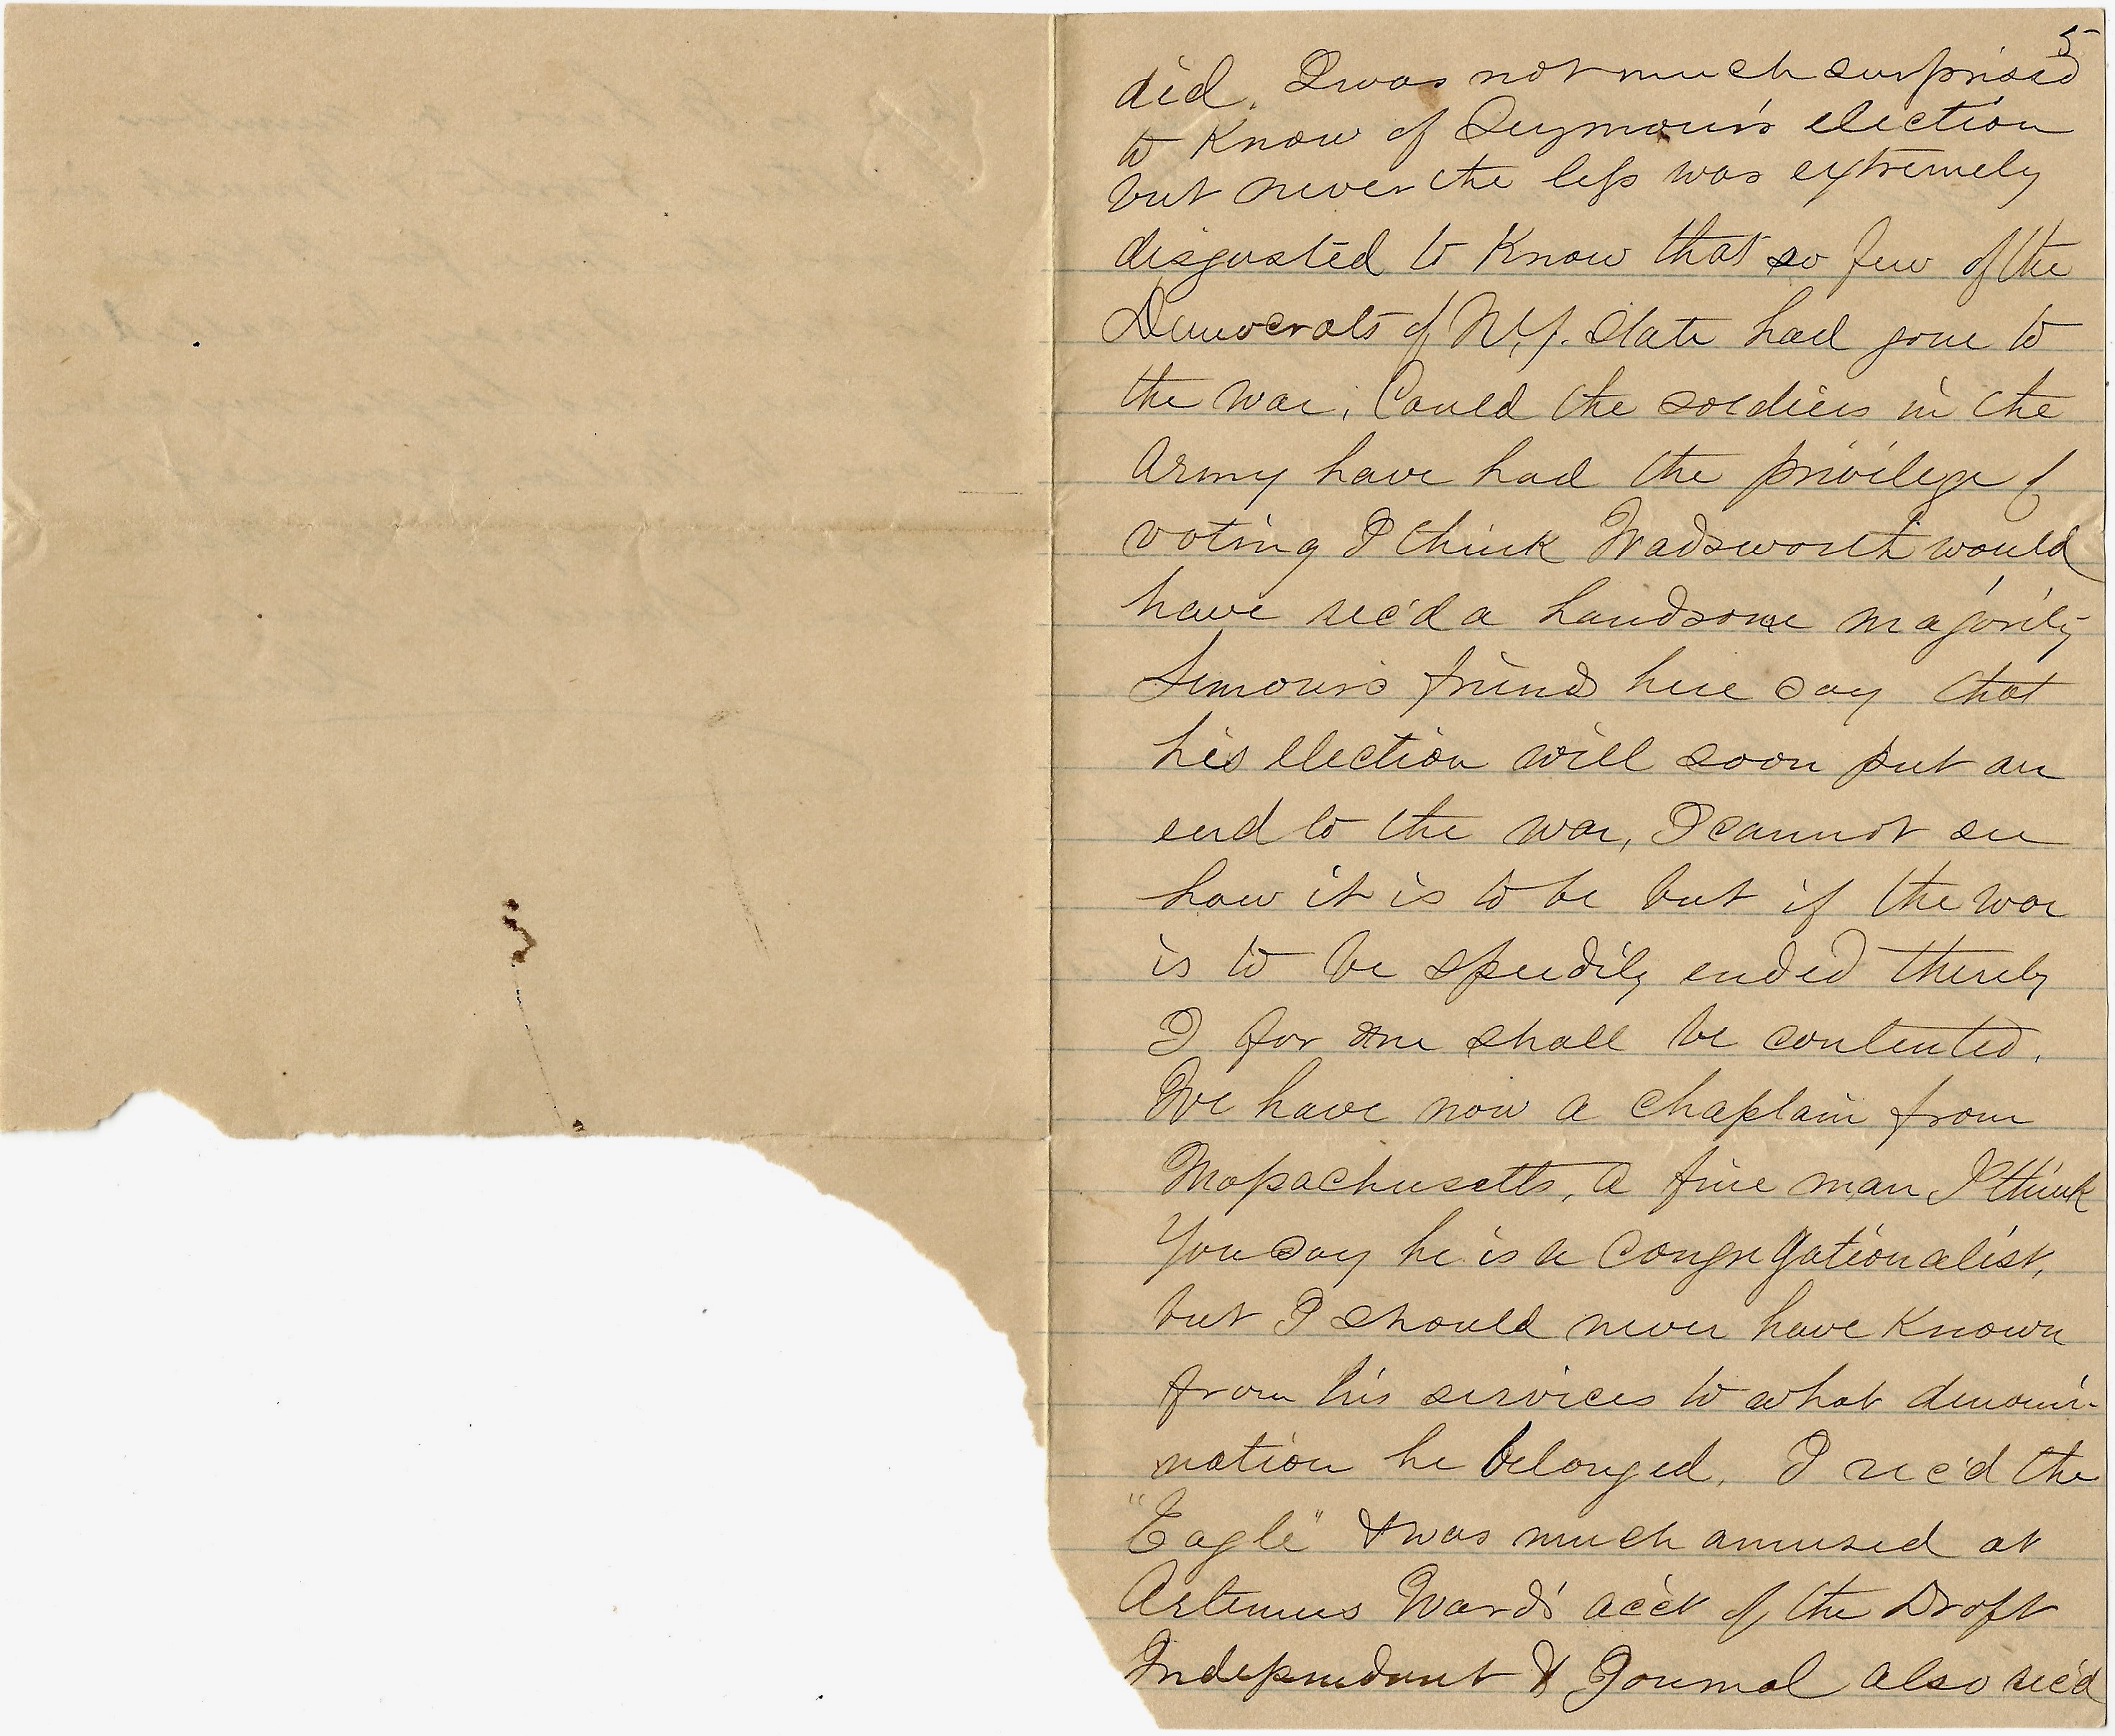 5
did. I was not much surprised
to Know of Seymour's election
but never the less was extremely
disgusted to Know that so few of the
Democrats of N.Y. State had gone to
the war. Could the soldiers in the
Army have had the privilege of
voting I think Wadsworth would
have rec'd a handsome majority
Semour's friends here say that
his election will soon put an
end to the war, I cannot see
how it is to be but if the war
is to be speedily ended thereby
I for one shall be contented.
We have now a Chaplain from
Massachusetts, a fine man I think
You say he is a Congregationalist,
but I should never have Known
from his services to what denomi-
nation he belonged. I rec'd the
"Eagle" & was much amused at
Artemus Ward's acc't of the Draft
Independent & Journal also rec'd